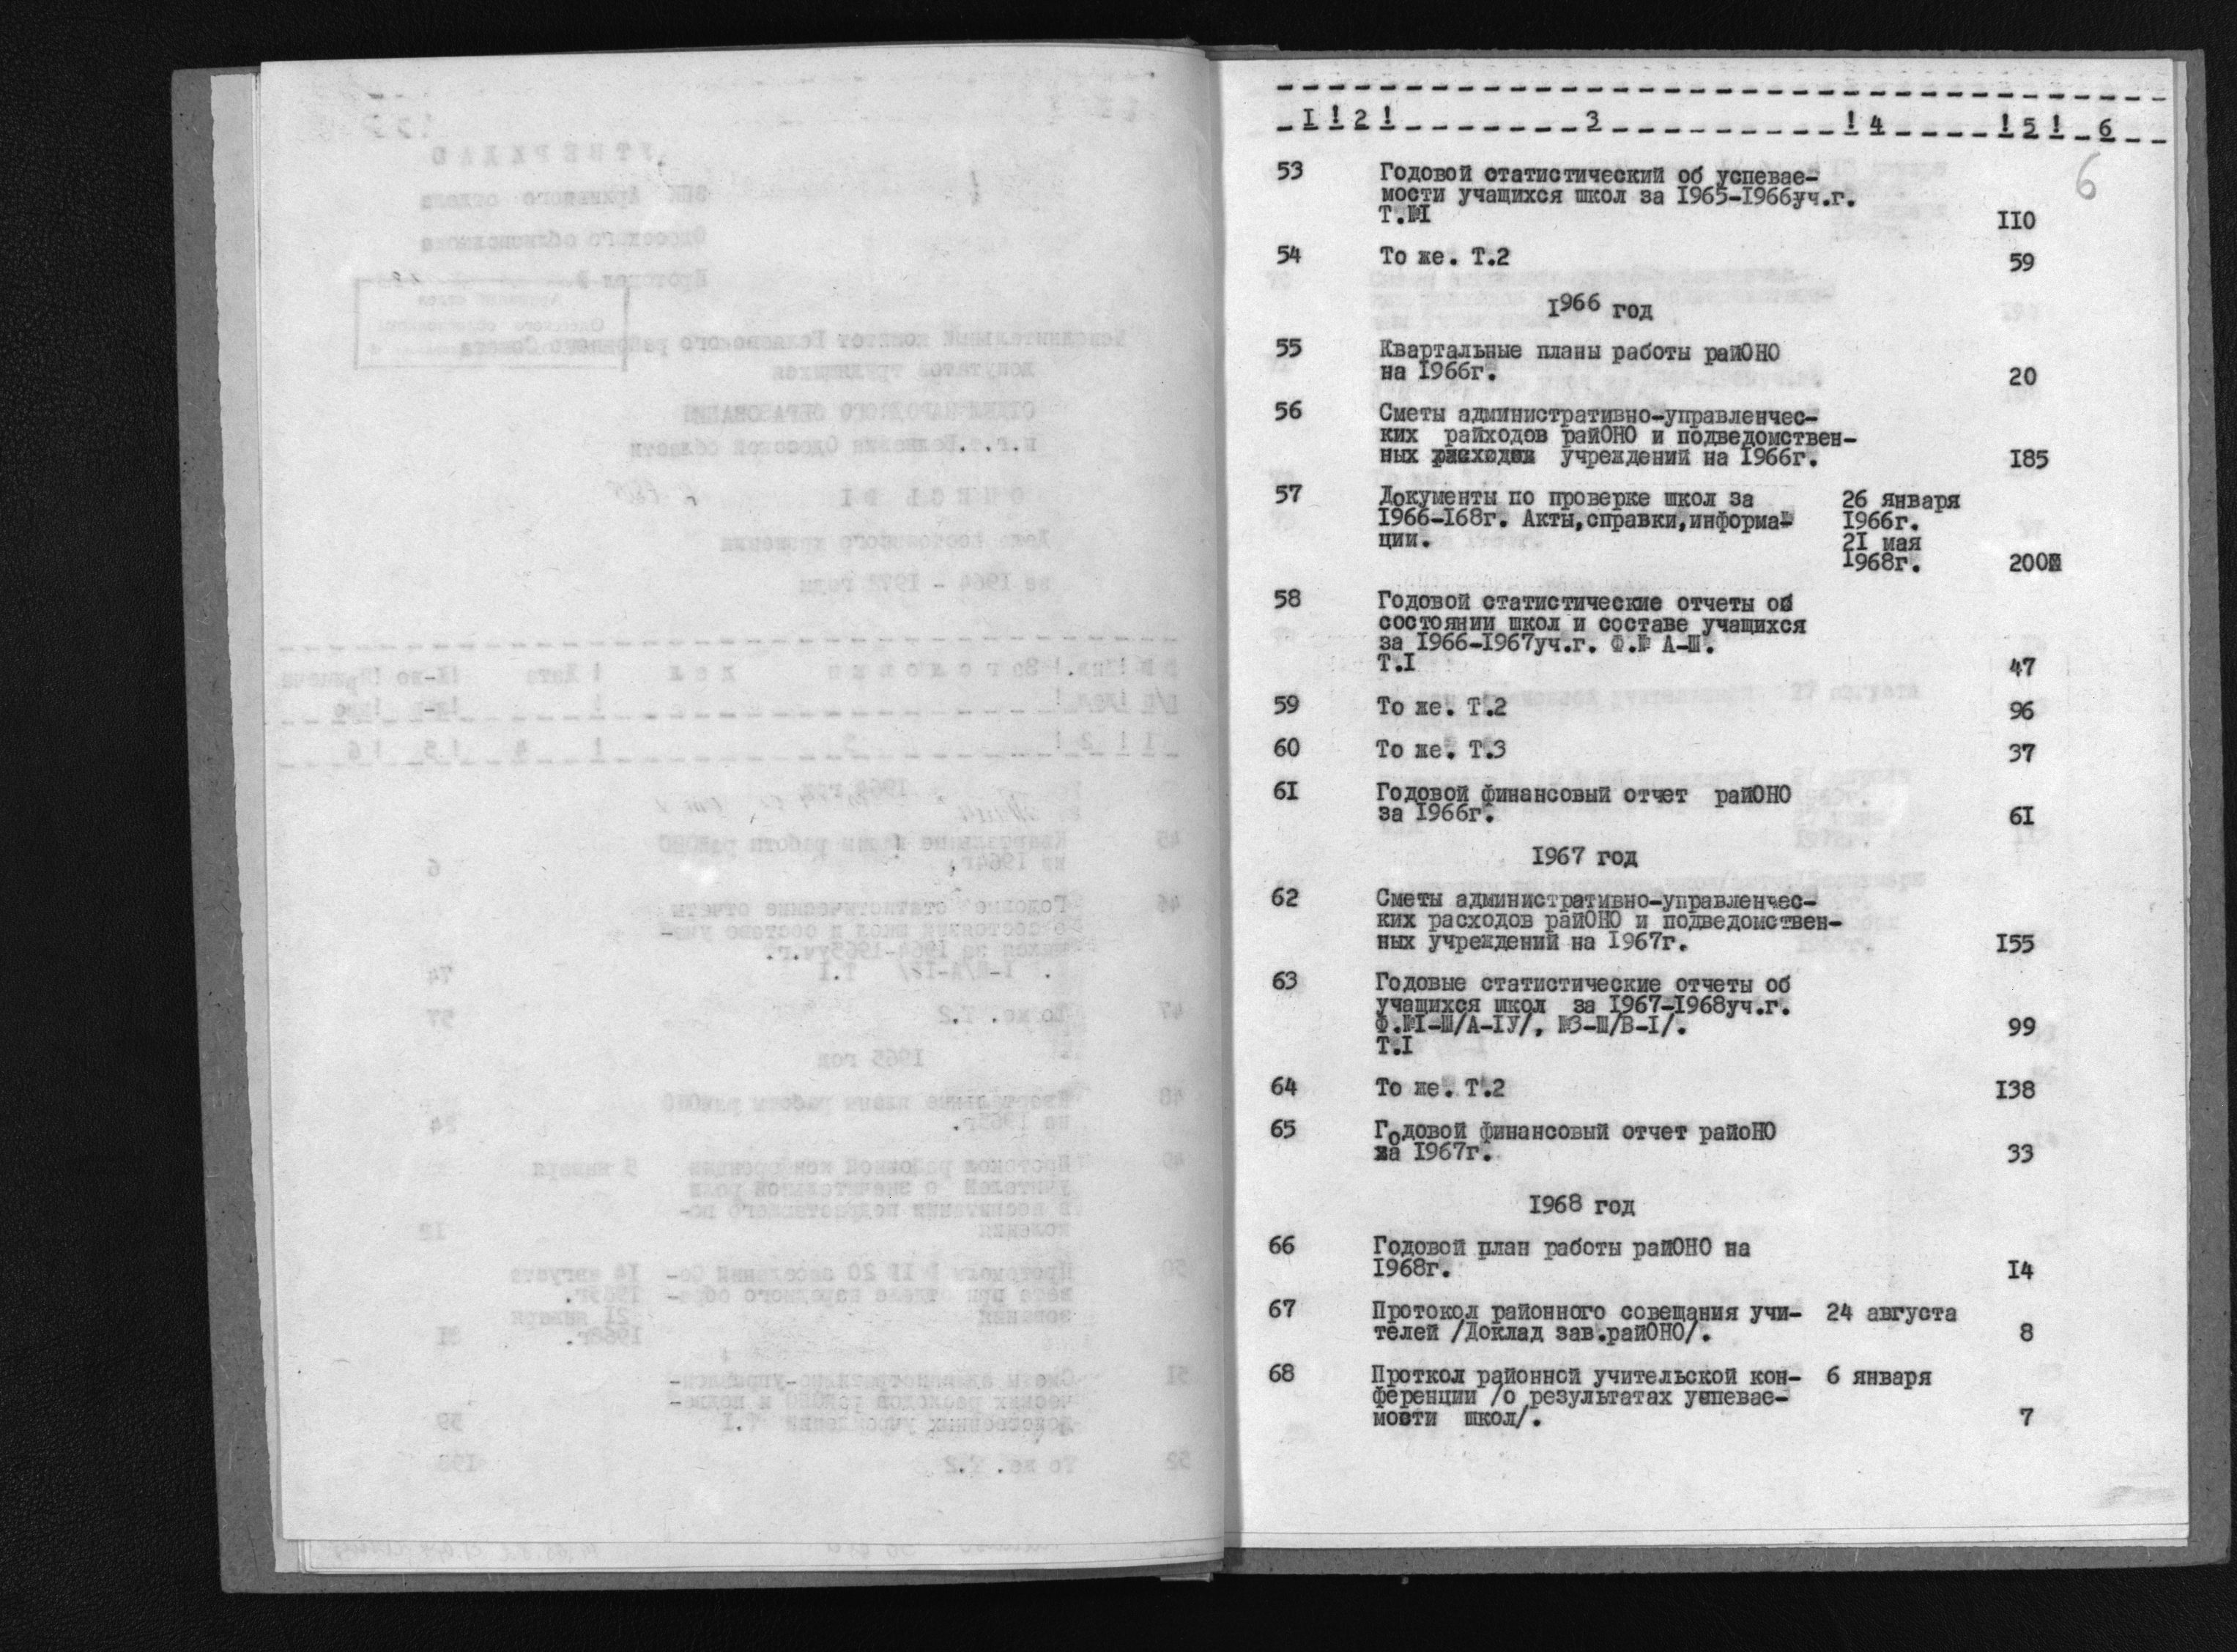 1 ! 2 ! 3 ! 4 ! 5 ! 6
6
53 Годовой статистический об успевае-
мости учащихся школ за I965-I966уч.г.
Т.№I II0
54 То же. Т.2 59
I966 год
55 Квартальные планы работы райОНО
на I966г. 20
56 Сметы административно-управленчес-
ких райходов райОНО и подведомствен-
ных учреждений на I966г. I85
57 Документы по проверке школ за 26 января
I966-I68г. Акты,справки,информа- I966г.
ции. 2I мая
I968г. 200
58 Годовой статистические отчеты об
состоянии школ и составе учащихся
за I966-I967уч.г. Ф.№ А-Ш.
Т.I 47
59 То же. Т.2 96
60 То же. Т.3 37
6I Годовой финансовый отчет райОНО
за I966г. 6I
I967 год
62 Сметы административно-управленчес-
ких расходов райОНО и подведомствен-
ных учреждений на I967г. I55
63 Годовые статистические отчеты об
учащихся школ за I967-I968уч.г.
Ф.№I-Ш/А-IУ/, №3-Ш/В-I/. 99
Т.I
64 То же. Т.2 I38
65 Годовой финансовый отчет райоНО
за I967г. 33
I968 год
66 Годовой план работы райОНО на
I968г. I4
67 Протокол районного совещания учи- 24 августа
телей /Доклад зав.райОНО/. 8
68 Проткол районной учительской кон- 6 января
ференции /о результатах успевае-
мости школ/. 7